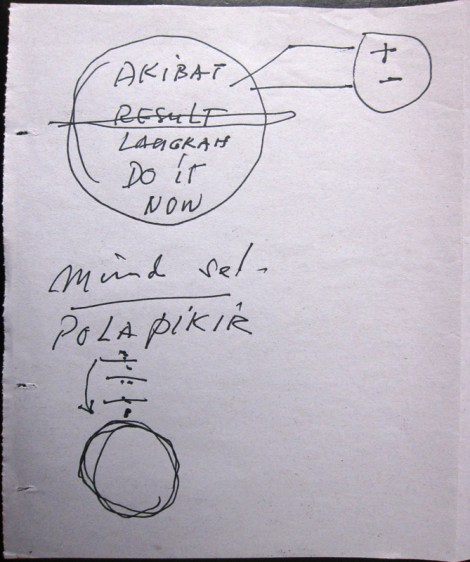 AKIBAT
RESULT
LANGKAH
DO IT
NOW
+
-
Mind set.
POLA PIKIR